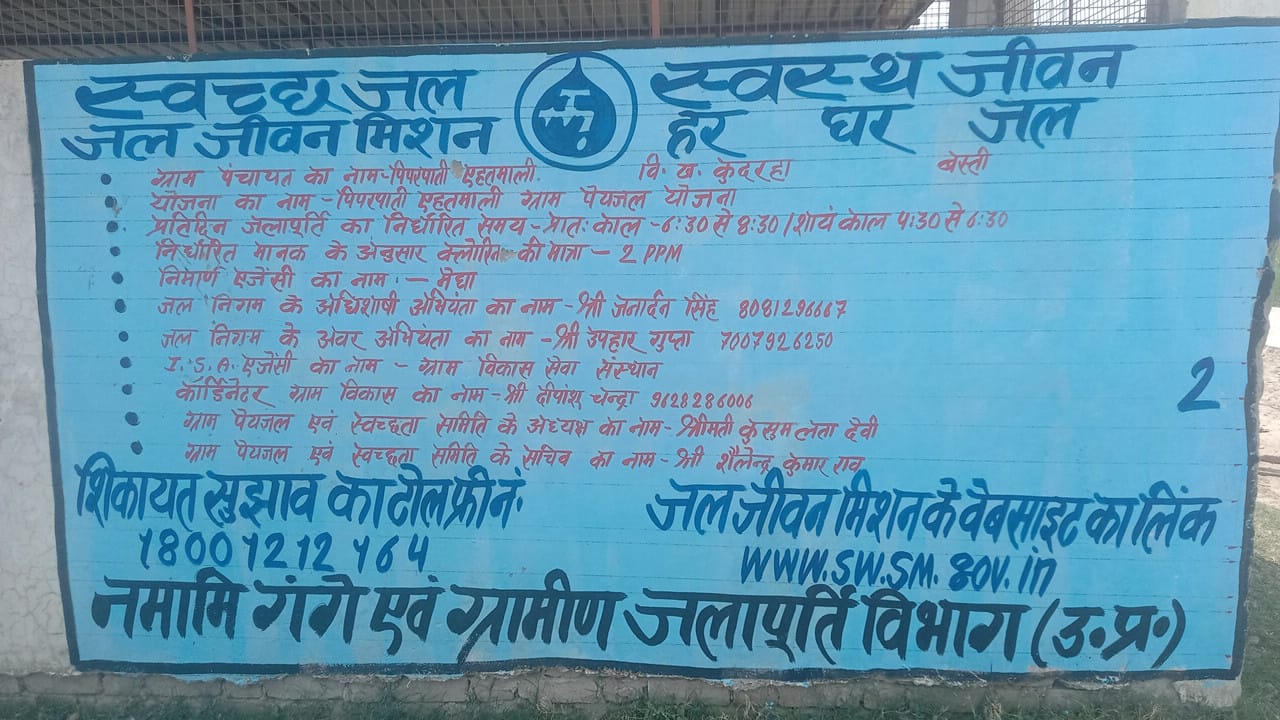 स्वच्छ जल स्वस्थ जीवन
जल जीवन मिशन हर घर जल
ग्राम पंचायत का नाम-पिपरपाती एहतमाली. वि. ख. कुदरहा बस्ती
योजना का नाम - पिपरपाती एहतमाली ग्राम पेयजल योजना
प्रतिदिन जलापूर्ति का निर्धारित समय - प्रातः काल - 6:30 से 8:30 / शायं काल 4:30 से 6:30
निर्धारित मानक के अनुसार क्लोरिन की मात्रा - 2 PPM
निमार्ण एजेंसी का नाम :- मेघा
जल निगम के अधिशाषी अभियंता का नाम - श्री जनार्दन सिंह 8081296667
जल निगम के अवर अभियंता का नाम - श्री उपहार गुप्ता 7007926250
I. S. A. एजेंसी का नाम - ग्राम विकास सेवा संस्थान
कॉर्डिनेटर ग्राम विकास का नाम - श्री दीपांशू चन्द्रा 9628286006
ग्राम पेयजल एवं स्वच्छता समिति के अध्यक्ष का नाम - श्रीमती कुसुम लता देवी
ग्राम पेयजल एवं स्वच्छता समिति के सचिव का नाम - श्री शैलेन्द्र कुमार राव
2
शिकायत सुझाव का टोल फ्री नं॰
1800 1212 164
जल जीवन मिशन के वेबसाइट का लिंक
WWW.SW.SM.gov.in
नमामि गंगे एवं ग्रामीण जलापूर्ति विभाग (उ॰प्र॰)